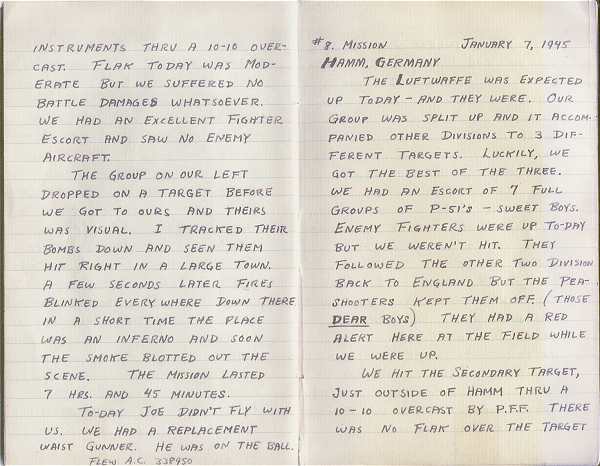 INSTRUMENTS THRU A 10-10 OVER-
CAST. FLAK TODAY WAS MOD-
ERATE BUT WE SUFFERED NO
BATTLE DAMAGES WHATSOEVER.
WE HAD AN EXCELLENT FIGHTER
ESCORT AND SAW NO ENEMY
AIRCRAFT.
THE GROUP ON OUR LEFT
DROPPED ON A TARGET BEFORE
WE GOT TO OURS AND THEIRS
WAS VISUAL. I TRACKED THEIR
BOMBS DOWN AND SEEN THEM
HIT RIGHT IN A LARGE TOWN.
A FEW SECONDS LATER FIRES
BLINKED EVERYWHERE DOWN THERE
IN A SHORT TIME THE PLACE
WAS AN INFERNO AND SOON
THE SMOKE BLOTTED OUT THE
SCENE. THE MISSION LASTED
7 HRS. AND 45 MINUTES.
TO-DAY JOE DIDN'T FLY WITH
US. WE HAD A REPLACEMENT
WAIST GUNNER. HE WAS ON THE BALL.
FLEW A.C. 338950
#8. MISSION JANUARY 7, 1945
HAMM, GERMANY
THE LUFTWAFFE WAS EXPECTED
UP TODAY – AND THEY WERE. OUR
GROUP WAS SPLIT UP AND IT ACCOM-
PANIED OTHER DIVISIONS TO 3 DIF-
FERENT TARGETS. LUCKILY, WE
GOT THE BEST OF THE THREE.
WE HAD AN ESCORT OF 7 FULL
GROUPS OF P-51'S – SWEET BOYS.
ENEMY FIGHTERS WERE UP TO-DAY
BUT WE WEREN'T HIT. THEY
FOLLOWED THE OTHER TWO DIVISION
BACK TO ENGLAND BUT THE PEA-
SHOOTERS KEPT THEM OFF. (THOSE
DEAR BOYS) THEY HAD A RED
ALERT HERE AT THE FIELD WHILE
WE WERE UP.
WE HIT THE SECONDARY TARGET,
JUST OUTSIDE OF HAMM THRU A
10-10 OVERCAST BY P.F.F. THERE
WAS NO FLAK OVER THE TARGET